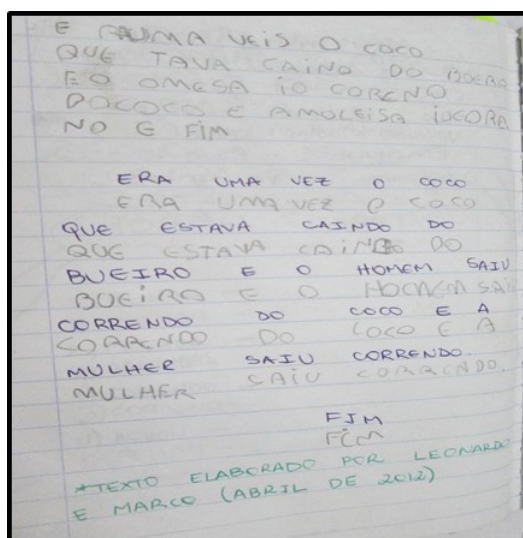 E RAUMA VEIS O COCO
QUE TAVA CAINO DO BOERO
E O OMESA IO CORENO
DOCOCO E AMOLEISA IOCORE
NO E FIM
ERA UMA VEZ O COCO
ERA UMA VEZ O COCO
QUE ESTAVA CAINDO DO
QUE ESTAVA CAINDO DO
BUEIRO E O HOMEM SAIU
BUEIRO E O HOMEM SAIU
CORRENDO DO COCO E A
CORRENDO DO COCO E A
MULHER SAIU CORRENDO.
MULHER SAIU CORRENDO.
FIM
FIM
*TEXTO ELABORADO POR LEONARDO
E MARCO (ABRIL DE 2012)